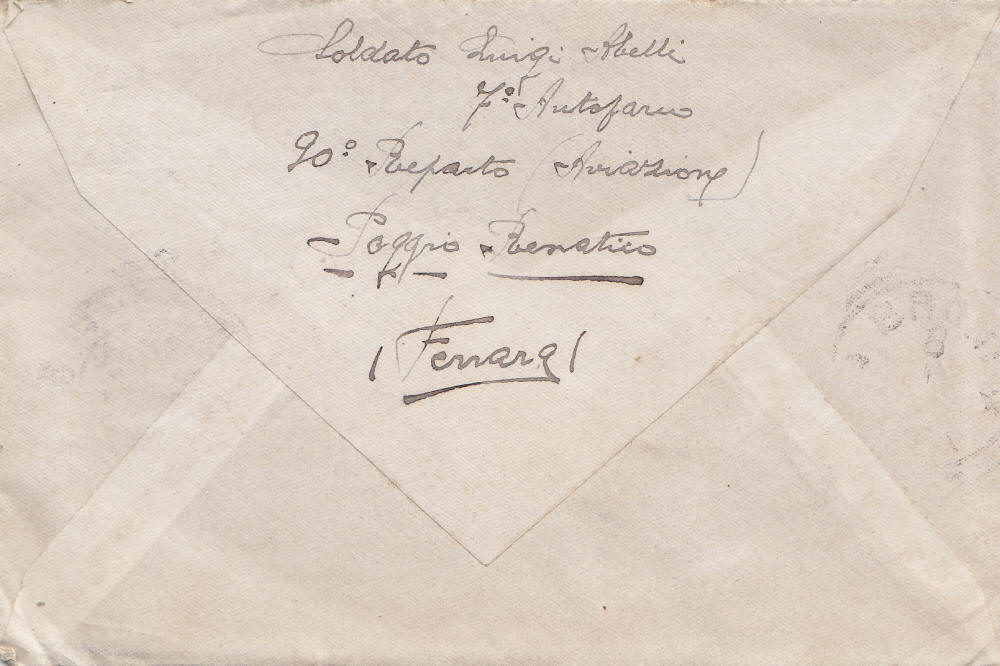 Soldato Luigi Abelli
7° Autoparco
90° Reparto (Aviazione)
Poggio Renatico
(Ferrara)